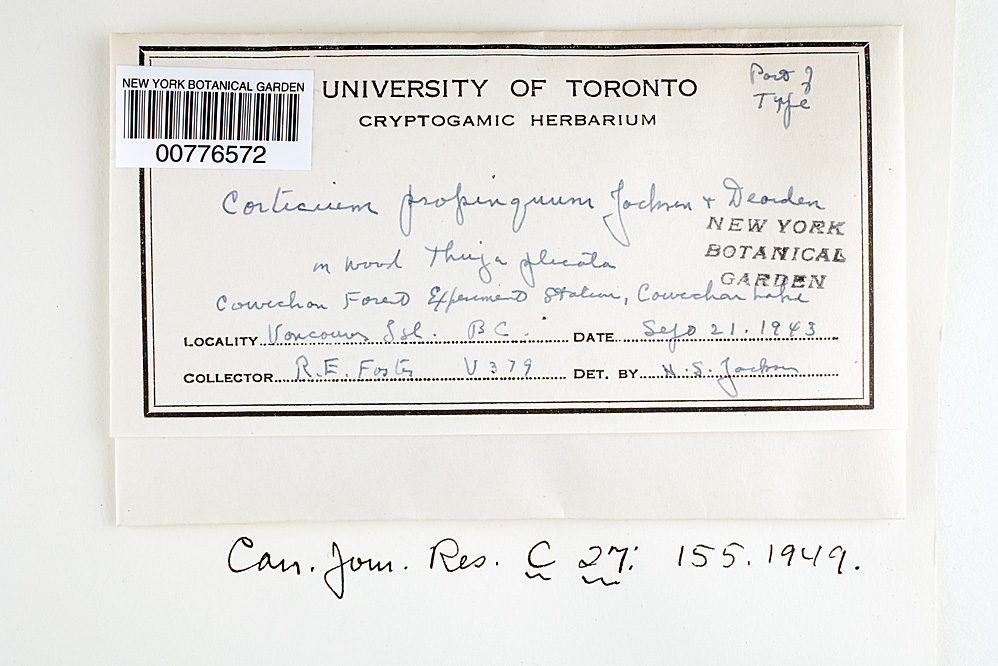 NEW YORK BOTANICAL GARDEN
00776572
UNIVERSITY OF TORONTO
CRYPTOGAMIC HERBARIUM
Part of
Type
Corticium propinquum Jackson & Dearden
NEW YORK
BOTANICAL
GARDEN
on wood Thuja plicata
Cowichan Forest Experiment Station, Cowichan Lake
LOCALITY Vancouver Isl. B C. DATE Sept 21. 1943
COLLECTOR R. E. Foster V 379 DET. BY H. S. Jackson
Can. Jour. Res. C 27: 155. 1949.